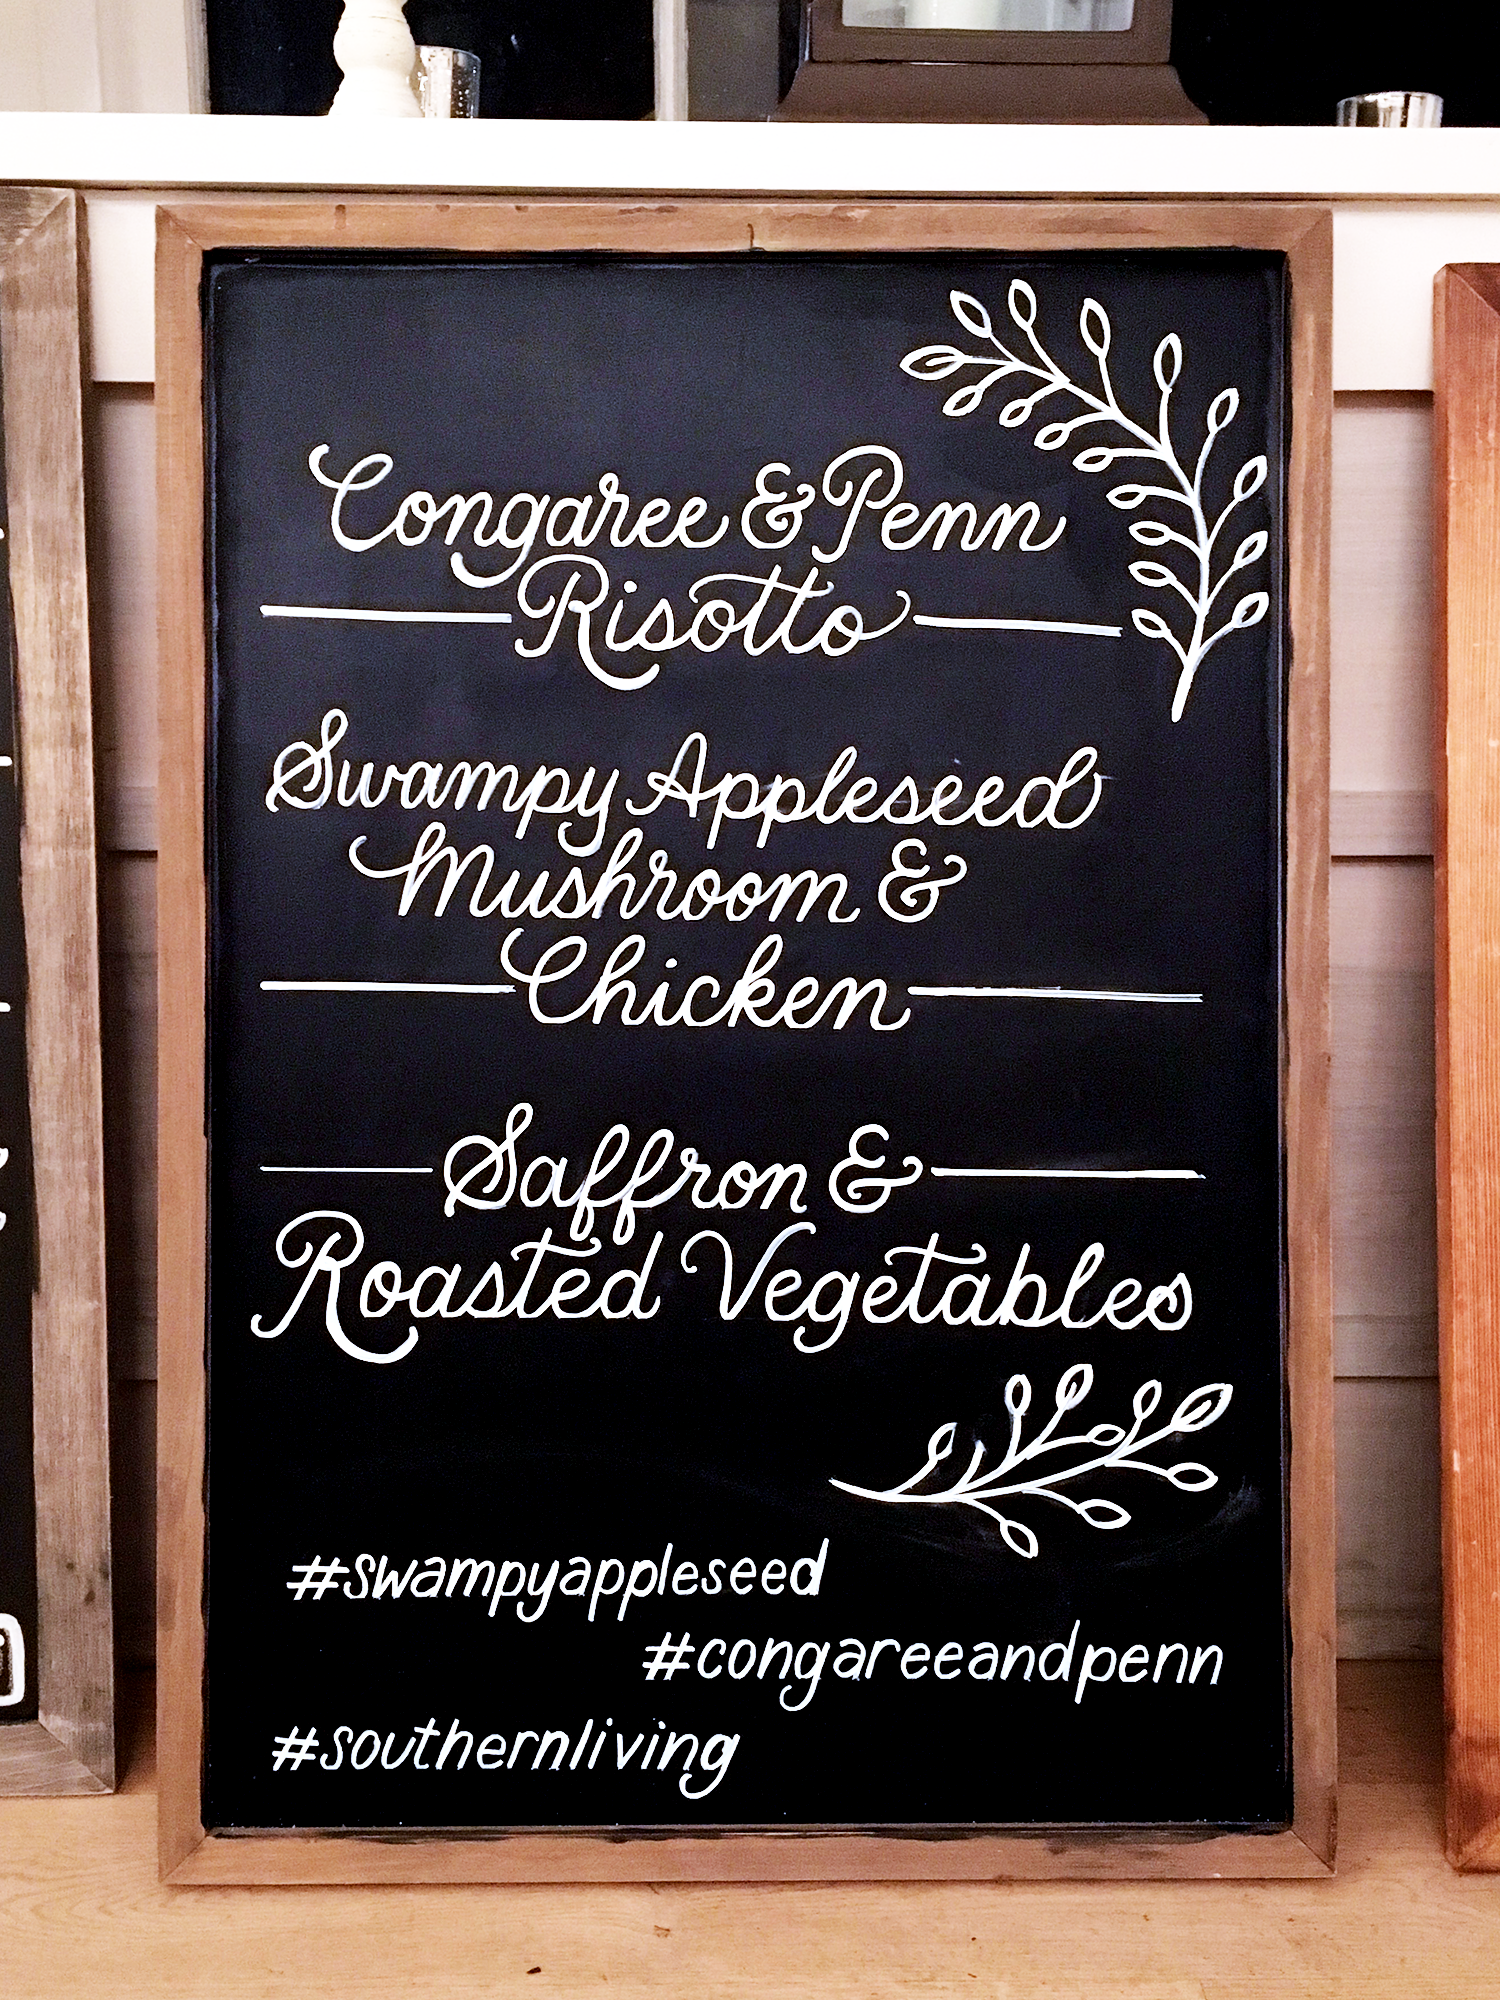 Congaree & Penn
Risotto
Swampy Appleseed
Mushroom &
Chicken
Saffron &
Roasted Vegetables
#swampyappleseed
#congareeandpenn
#southernliving